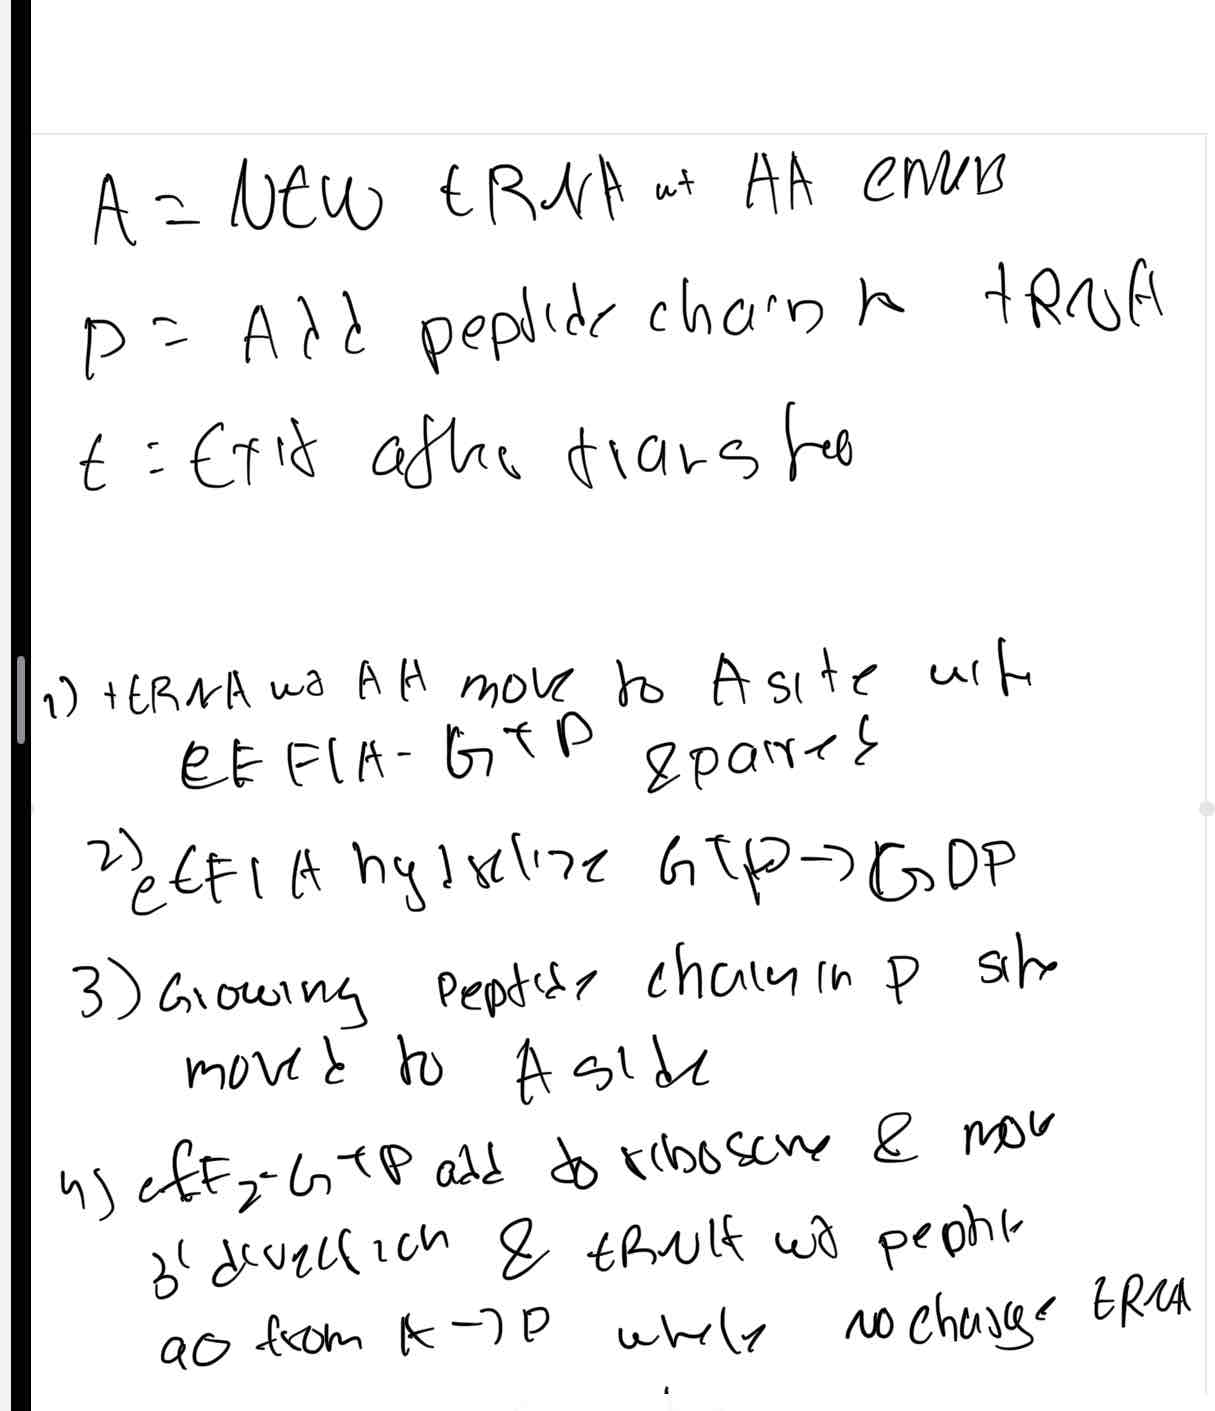 A = New tRNA w/ AA enters
P = Add peptide chain to tRNA
E = Exit after transfer
1) tRNA w/ AA move to A site with
eEF1A-GTP & paired
2) eEF1A hydrolize GTP → GDP
3) Growing peptide chain in P site
moved to A side
4) eEF2-GTP add to ribosome & move
3' direction & tRNA w/ peptide
go from A → P while no charge tRNA